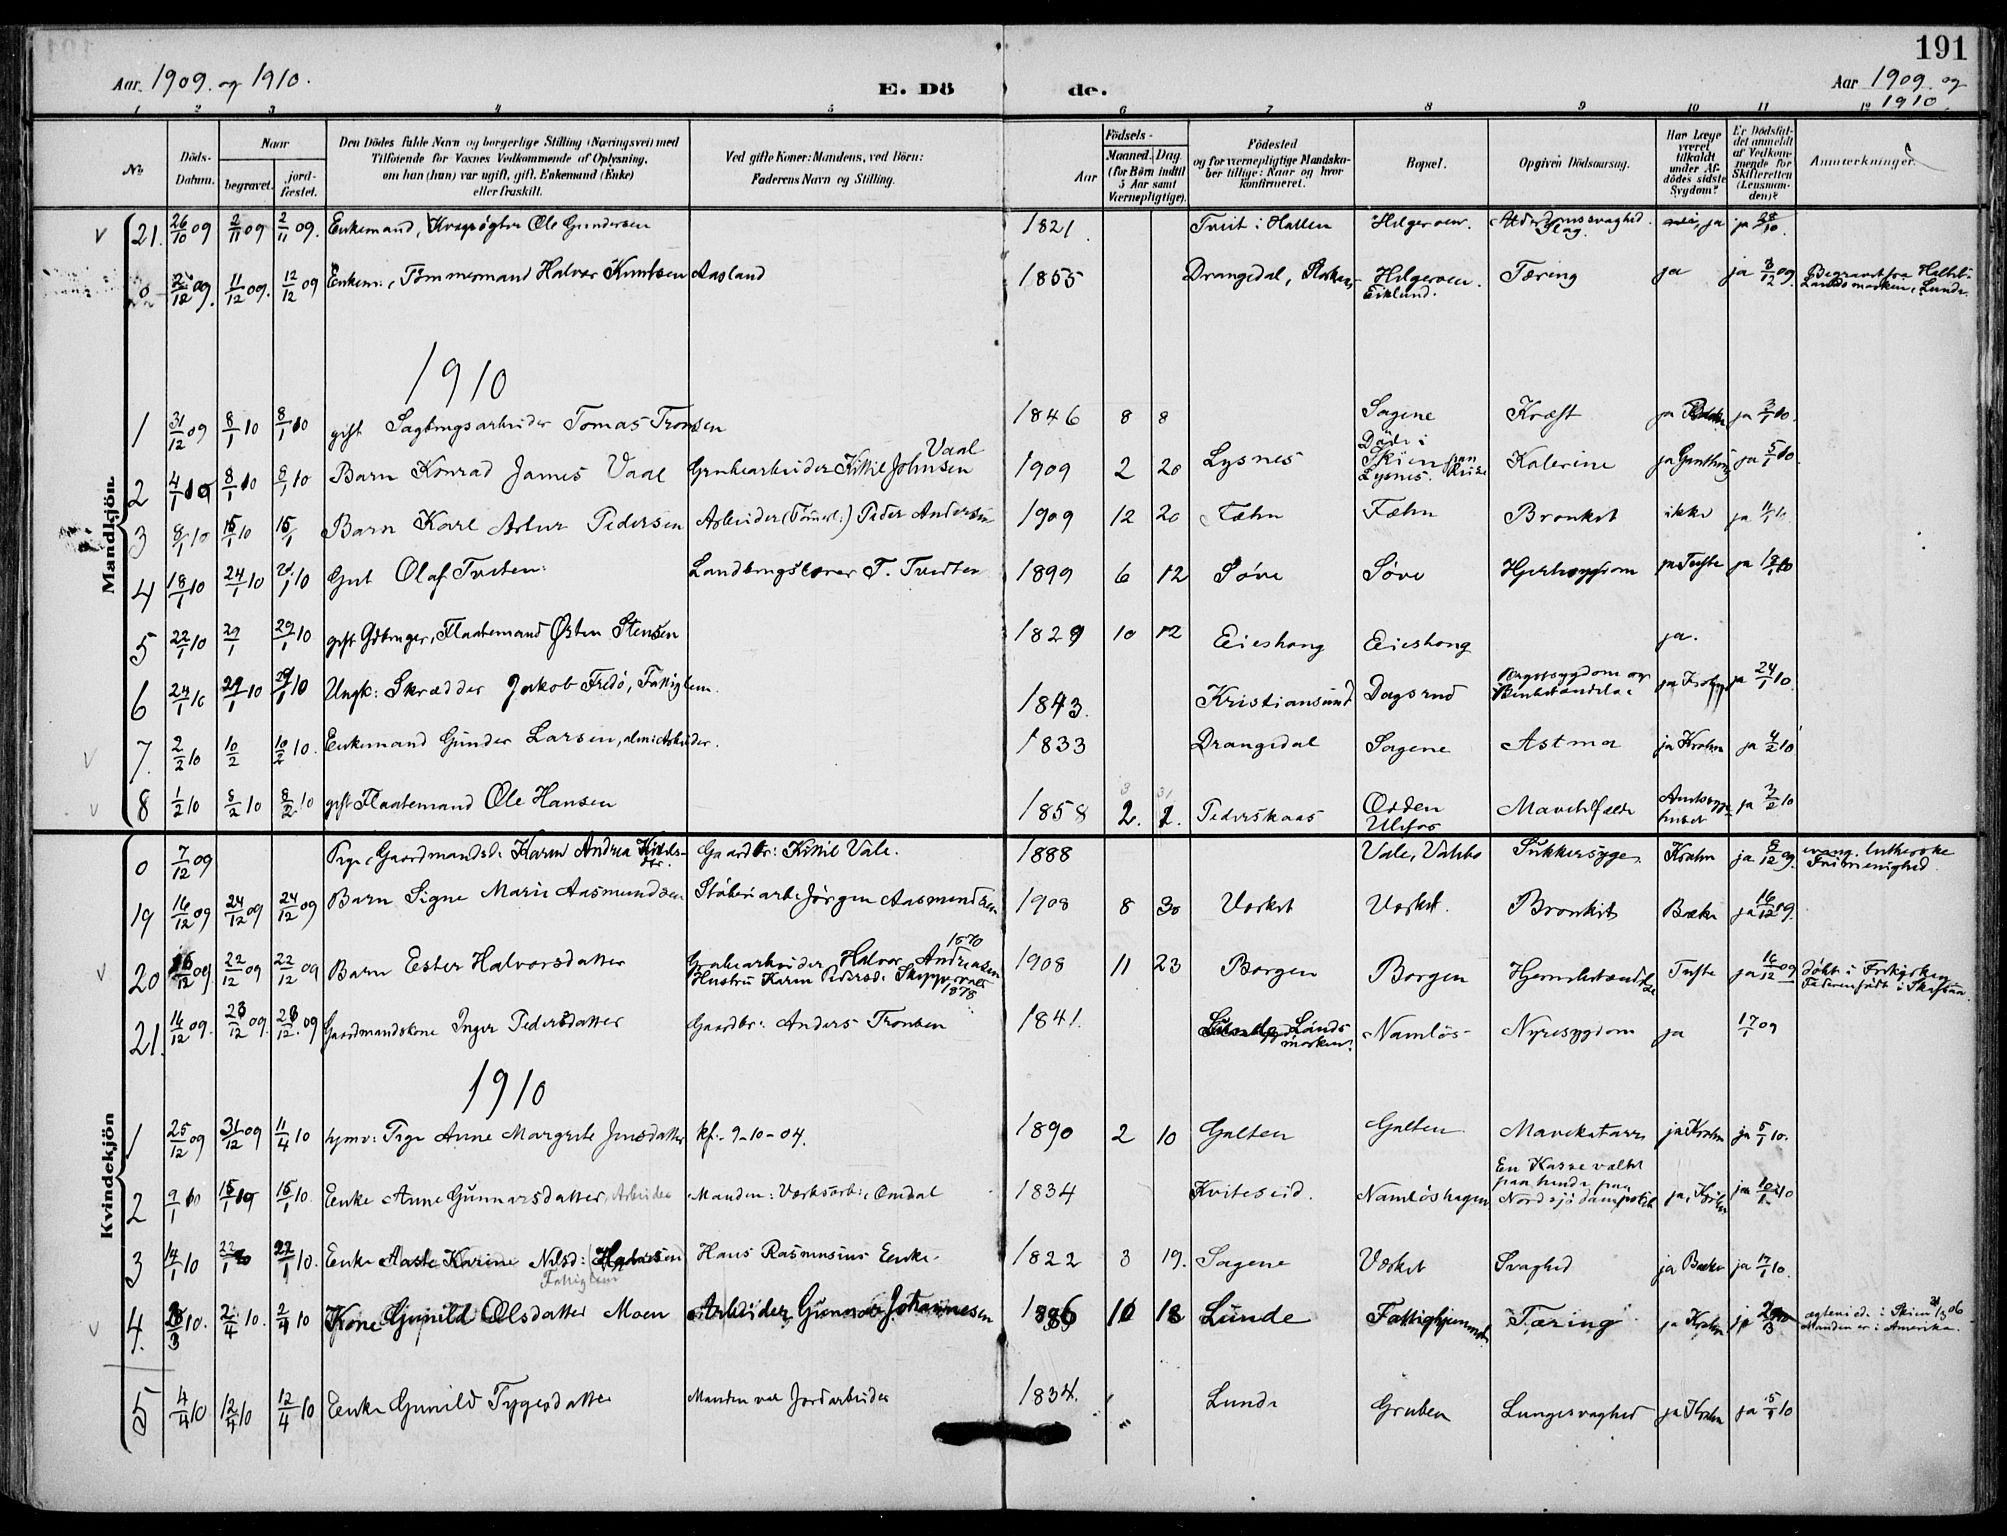 191
Aar 1909. og 1910.
E. Dö de.
Aar 1909 og 1910.
1 2 3 4 5 6 7 8 9 10 11 12
No
Döds-Datum.
Naar
begravet.
jord-fæstet.
Den Dödes fulde Navn og borgerlige Stilling (Næringsvei) med
Tilföiende for Voxnes Vedkommende af Oplysning,
om han (hun) var ugift, gift, Enkemand (Enke)
eller fraskilt.
Ved gifte Koner: Mandens, ved Börn:
Faderens Navn og Stilling.
Födsels-
Aar
Maaned. Dag
(for Börn indtil
5 Aar samt
Værnepligtige).
Födested
og for værnepligtige Mandska-
ber tillige: Naar og hvor
konfirmeret.
Bopæl.
Opgiven Dödsaarsag.
Har Læge
været
tilkaldt
under Af-
dödes sidste
Sygdom?
Er Dödsfal-
det anmeldt
af Vedkom-
mende for
Skifteretten
(Lensman-
den)?
Anmærkninger.
Mandkjön.
21. 26/10 09 2/11 09 2/11 09. Enkemand, Ole Gundersen 1821. Tveit i Hollen Helgeroen. Alderdomssvaghed. Slag. ja ja 28/10.
0 2/12 09. 11/12 09. 12/12 09 Enkem:, Tømmermand Halvor Knutsen Aasland 1855 Drangedal, Helgeroen. Eiklund. Tæring ja ja 3/12 09. Begravet fra Lunde.
1910
1 31/12 09 8/1 10 8/1 10 gift Sagbrugsarbeider Tomas Tronsen 1846 8 8 Sagene Kræft ja ja 3/1 10.
2 4/1 10 8/1 10 8/1 10 Barn Konrad James Vaal Grubearbeider Kittil Johnsen Vaal 1909 2 20 Lysnes Døde i Skien paa Reise Lysnes. Kolerine ja ja 5/1 10.
3 8/1 10 15/1 10 15/1 Barn Karl Artur Pedersen Arbeider (Tømerl:) Peder Andersen 1909 12 20 Fæhn Fæhn Bronkit ikke ja 11/1 10
4 18/1 10 24/1 10 24/1 10 Gut Olaf Tveten. Landbrugslærer T. Tveten 1899 6 12 Søve Søve Hjertesygdom ja Tufte ja 19/1 10
5 22/1 10 29/1 29/1 10 gift Gdbruger, Flaatemand Østen Stensen 1829 10 12 Eieshong Eieshong ja.
6 24/1 10 29/1 10 29/1 10 Ungk: Skrædder Jakob Fredø, Fattiglem. 1843. Kristiansund Dagsrud ja ja 24/1 10.
7. 2/2 10 10/2 10/2 10. Enkemand Gunder Larsen, alm: Arbeider. 1833 Drangedal Sagene Astma ja Krohn ja 4/2 10
8 1/2 10 8/2 10 8/2 10 gift Flaatemand Ole Hansen 1858 2. 2. Pederskaas Odden Ulefos Amtssygehuset ja 3/2 10
Kvindekjön
0 7/12 09 Pige, Gaardmandsd: Karen Andrea Kittilsdtr. Gaardbr: Kittil Vale. 1888 Vale, Valebø Sukkersyge. Krohn ja 8/12 09. evang. lutherske Frimenighed.
19 16/12 09 24/12 09 24/12 09 Barn Signe Marie Aasmundsen Støberiarb: Jørgen Aasmundsen 1908 8 30 Værket Værket. Bronkit Bække ja 16/12 09.
20 16/12 09. 22/12 09 22/12 09 Barn Ester Halvorsdatter Grubearbeider Halvor Andreasen 1870 Hustru Karen Pedersd: 1878. 1908 11 23 Borgen Borgen Hjernebetændelse Tufte ja 16/12 09 døbt i Frikirken. Faderen født i
21. 16/12 09. 23/12 09. 23/12 09 Gaardmandskone Inger Pedersdatter Gaardbr: Anders Tronsen 1841. Landsmarken. Namløs Nyresygdom ja 17/1 09
1910
1 25/12 09 31/12 09 11/4 10 hjmv: Pige Anne Margrete Jensdatter kf. 9-10-04. 1890 2 10 Galten Galten Mavekatarr ja Krohn ja 5/1 10.
2 9/1 10 15/1 10 15/1 10 Enke Anne Gunnarsdatter, Arbeider Manden: Værksarb:, Omdal 1834 Kviteseid. Namløshagen En Kasse væltet paa hende paa Nordsjø dampskib ja, ja 10/1 10
3 14/1 10 22/1 10 22/1 10. Enke Aaste Karine Nilsd: Fattiglem Hans Rasmussens Enke. 1822 3 19. Sagene Værket Svaghed ja Bække ja 17/1 10.
4. 28/3 10. 2/4 10. 2/4 10 Kone Gunild Olsdatter Moen Arbeider Gunnar Johannesen 1886 10 18 Lunde Fattighjemmet Tæring ja Krohn ja 29/3 ægteviet i Skien 06 Manden er i Amerika.
5 4/4 10 12/4 10 12/4 10 Enke Gunild Tygesdatter Manden var Jordarbeider 1834. " Lunde Gruben Lungesvaghed ja Krohn ja 5/4 10